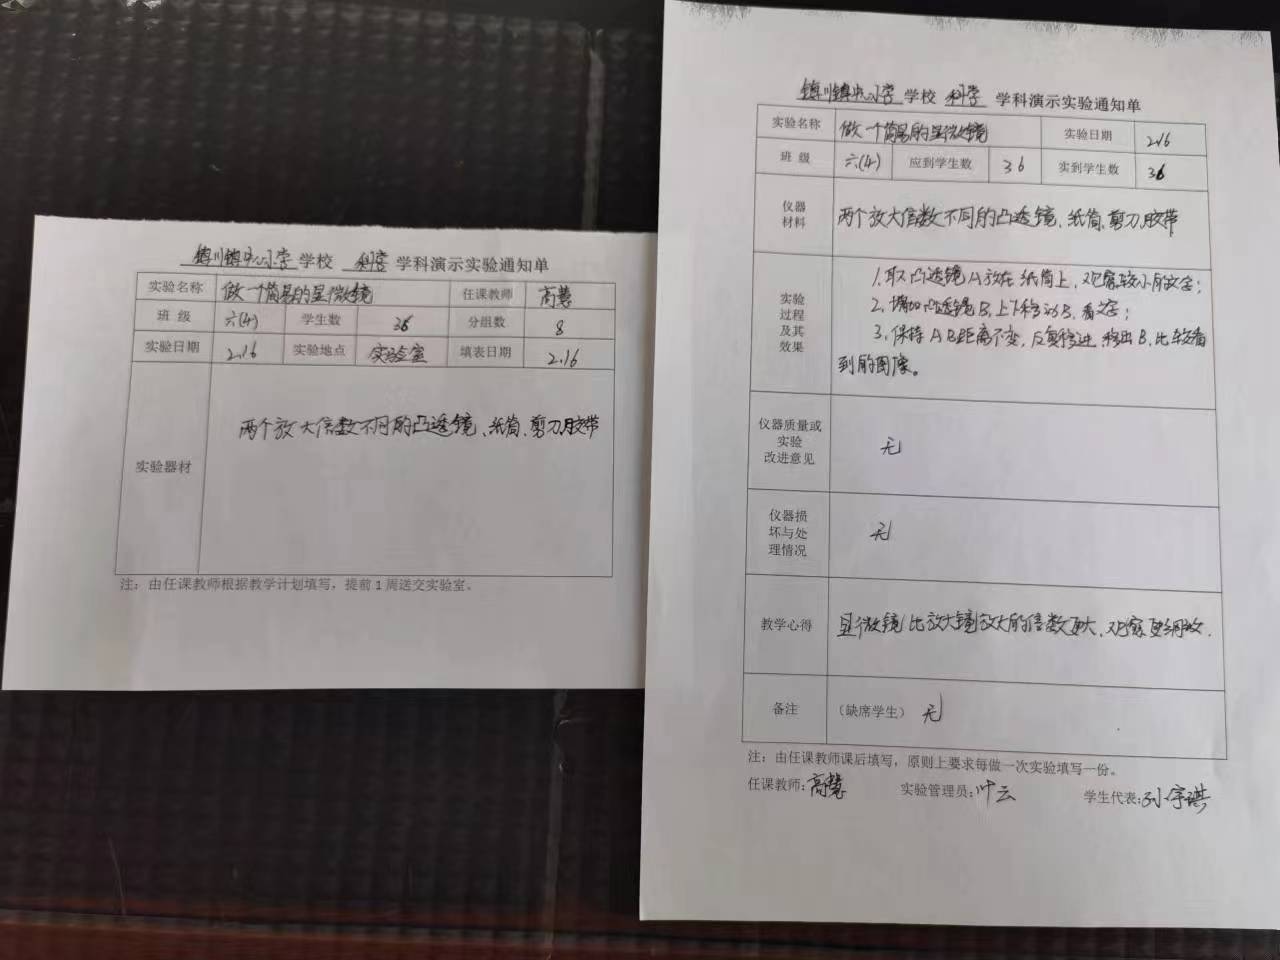 镇川镇中心小学 学校 科学 学科演示实验通知单
实验名称 做一个简易的显微镜 任课教师 高慧
班 级 六(4) 学生数 36 分组数 8
实验日期 2.16 实验地点 实验室 填表日期 2.16
实验器材 两个放大倍数不同的凸透镜、纸筒、剪刀、胶带
注：由任课教师根据教学计划填写，提前1周送交实验室。
镇川镇中心小学 学校 科学 学科演示实验通知单
实验名称 做一个简易的显微镜 实验日期 2.16
班 级 六(4) 应到学生数 36 实到学生数 36
仪器
材料
两个放大倍数不同的凸透镜、纸筒、剪刀、胶带
实验
过程
及其
效果
1.取凸透镜A放在纸筒上，观察较小的文字；
2.增加凸透镜B，上下移动B，看文字；
3.保持AB距离不变，反复移进、移出B，比较看
到的图像。
仪器质量或
实验
改进意见
无
仪器损
坏与处
理情况
无
教学心得 显微镜比放大镜放大的倍数更大、观察更细致.
备注 （缺席学生） 无
注：由任课教师课后填写，原则上要求每做一次实验填写一份。
任课教师：高慧 实验管理员：叶云 学生代表：孙宇琪